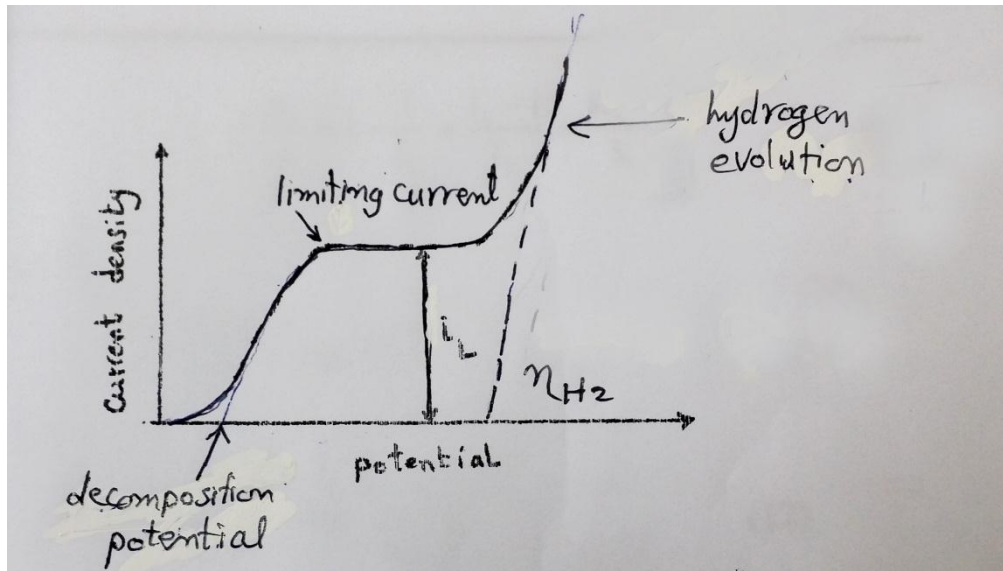 hydrogen
evolution
limiting current
current density
i_L
η_H2
potential
decomposition
potential